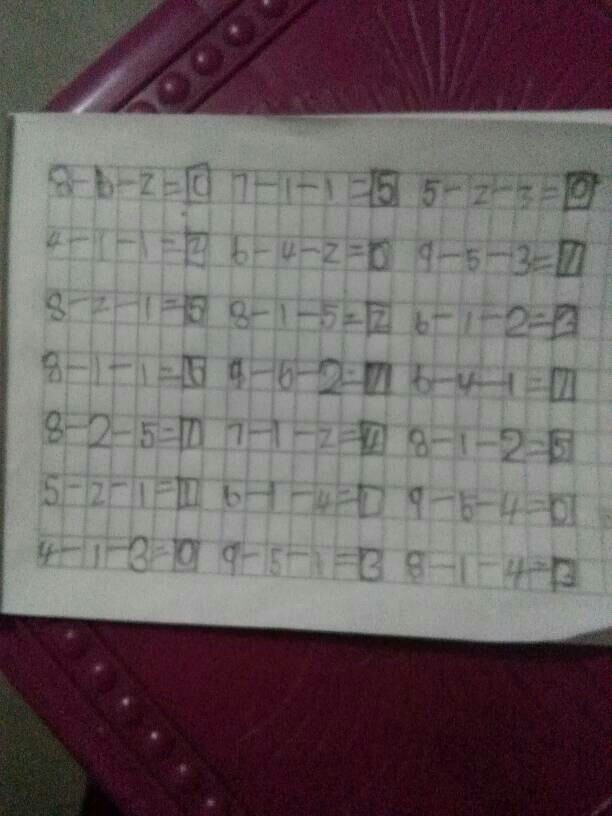 8-6-2=0 7-1-1=5 5-2-3=0
4-1-1=2 6-4-2=0 9-5-3=1
8-2-1=5 8-1-5=2 6-1-2=3
8-1-1=6 9-6-2=1 6-4-1=1
8-2-5=1 7-1-2=4 8-1-2=5
5-2-1=1 6-1-4=1 9-5-4=0
4-1-3=0 9-5-1=3 8-1-4=3